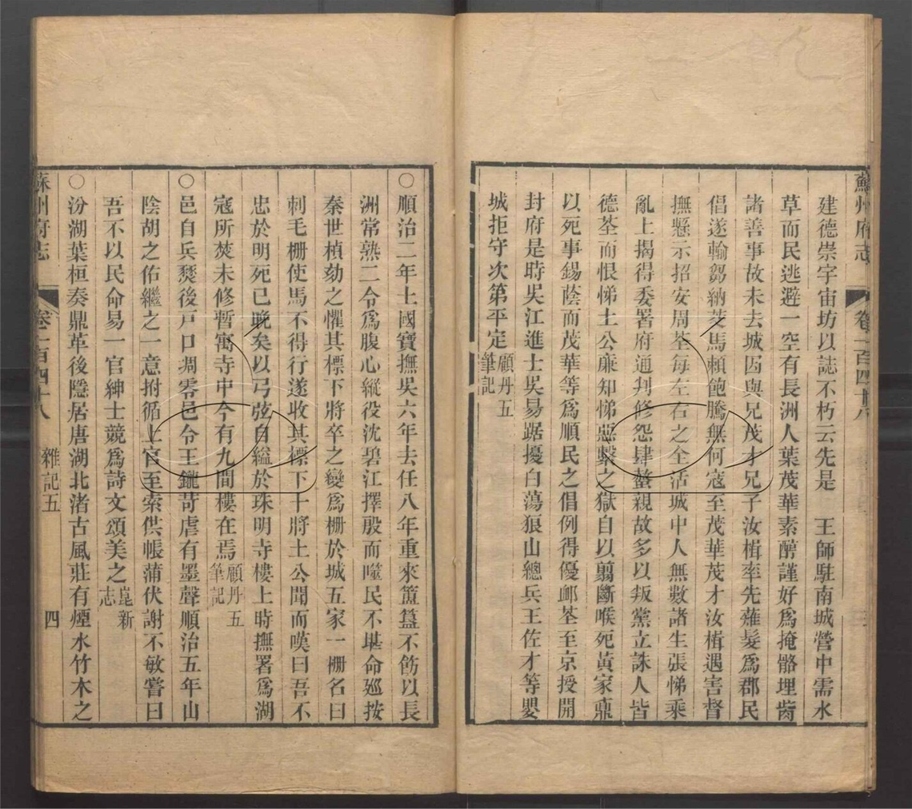 蘇州府志
卷一百四十八
建德崇宇宙坊以誌不朽云先是　王師駐南城營中需水
草而民逃避一空有長洲人葉茂華素醇謹好為掩骼埋胔
諸善事故未去城因與兄茂才兄子汝楫率先薙髮爲郡民
倡遂輸芻納茭馬賴飽騰無何寇至茂華茂才汝楫遇害督
撫懸示招安周荃每左右之全活城中人無數諸生張悌乘
亂上揭得委署府通判修怨肆螫親故多以叛黨立誅人皆
德荃而恨悌土公廉知悌惡繫之獄自以翦斷喉死黃家鼒
以死事錫蔭而茂華等爲順民之倡例得優邮荃至京授開
封府是時吳江進士吳易踞擾白蕩狼山總兵王佐才等嬰
城拒守次第平定顧丹五
筆記
〇順治二年土國寶撫吳六年去任八年重來簠簋不飭以長
洲常熟二令爲腹心縱役沈碧江擇殷而噬民不堪命廵按
秦世楨劾之懼其標下將卒之變爲柵於城五家一柵名曰
刺毛柵使馬不得行遂收其標下十將土公聞而嘆曰吾不
忠於明死已晚矣以弓弦自縊於珠明寺樓上時撫署爲湖
寇所焚未修暫寓寺中今有九間樓在焉顧丹五
筆記
〇邑自兵燹後戸口凋零邑令王鑨苛虐有墨聲順治五年山
陰胡之佑繼之一意拊循上官至索供帳蒲伏謝不敏嘗曰
吾不以民命易一官紳士競爲詩文頌美之崑新
志
〇汾湖葉桓奏鼎革後隱居唐湖北渚古風莊有煙水竹木之
蘇州府志
卷一百四十八
雜記五
四